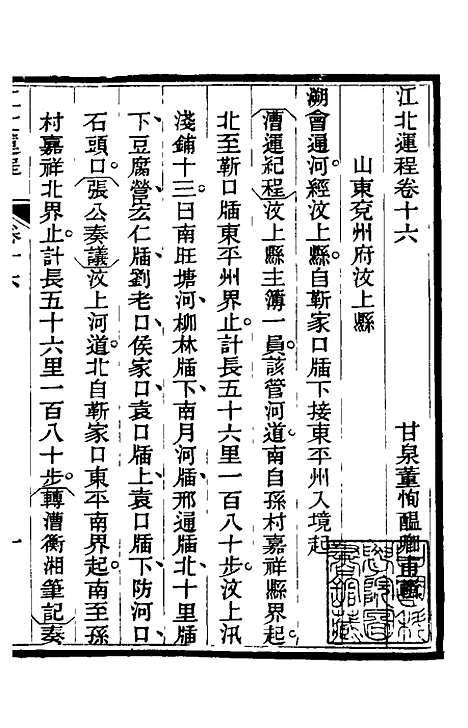 江北運程卷十六
甘泉董恂醖卿甫輯
山東兗州府汶上縣
溯會通河經汶上縣。自靳家口牐下接東平州入境起
漕運紀程汶上縣主簿一員該管河道南自孫村嘉祥縣界起。
北至靳口牐東平州界止計長五十六里一百八十步。汶上汛
淺鋪十三曰南旺塘河、柳林牐下、南月河牐、邢通牐、北十里牐
下、豆腐營、玄仁牐、劉老口、侯家口、袁口牐上、袁口牐下、防河口、
石頭口。張公奏議汶上河道。北自靳家口東平南界起。南至孫
村嘉祥北界止計長五十六里一百八十步。轉漕衡湘筆記奏
卷十六
一